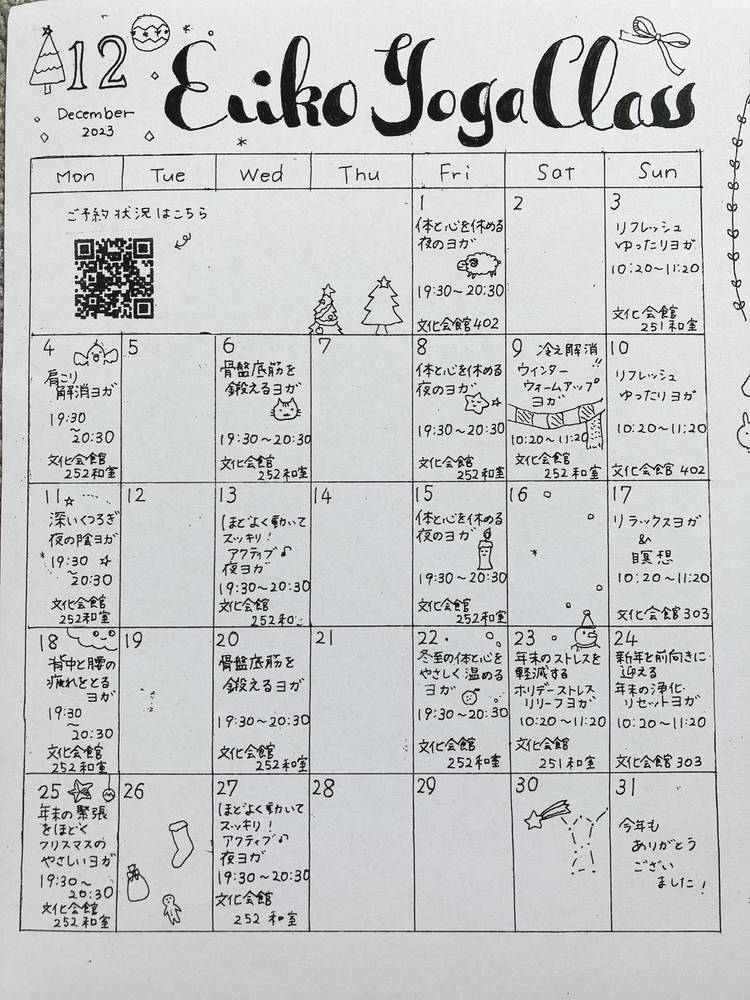 12
December
2023
Eriko Yoga Class
Mon Tue Wed Thu Fri Sat Sun
ご予約状況はこちら
1
体と心を休める
夜のヨガ
19:30〜20:30
文化会館402
2
3
リフレッシュ
ゆったりヨガ
10:20〜11:20
文化会館
251和室
4
肩こり
解消ヨガ
19:30
〜20:30
文化会館
252和室
5
6
骨盤底筋を
鍛えるヨガ
19:30〜20:30
文化会館
252和室
7
8
体と心を休める
夜のヨガ
19:30〜20:30
文化会館
252和室
9
冷え解消!!
ウインター
ウォームアップ
ヨガ
10:20〜11:20
文化会館
252和室
10
リフレッシュ
ゆったりヨガ
10:20〜11:20
文化会館 402
11
深いくつろぎ
夜の陰ヨガ
19:30
〜20:30
文化会館
252和室
12
13
ほどよく動いて
スッキリ!
アクティブ♪
夜ヨガ
19:30〜20:30
文化会館
252和
14
15
体と心を休める
夜のヨガ
19:30〜20:30
文化会館
252和室
16
17
リラックスヨガ
&
瞑想
10:20〜11:20
文化会館303
18
背中と腰の
疲れをとる
ヨガ
19:30
〜20:30
文化会館
252和室
19
20
骨盤底筋を
鍛えるヨガ
19:30〜20:30
文化会館
252和室
21
22
冬至の体と心を
やさしく温める
ヨガ
19:30〜20:30
文化会館
252和室
23
年末のストレスを
軽減する
ホリデーストレス
リリーフヨガ
10:20〜11:20
文化会館
251和室
24
新年を前向きに
迎える
年末の浄化
リセットヨガ
10:20〜11:20
文化会館303
25
年末の緊張
をほどく
クリスマスの
やさしいヨガ
19:30〜
20:30
文化会館
252和室
26
27
ほどよく動いて
スッキリ!
アクティブ♪
夜ヨガ
19:30〜20:30
文化会館
252 和室
28
29
30
31
今年も
ありがとう
ござい
ました!